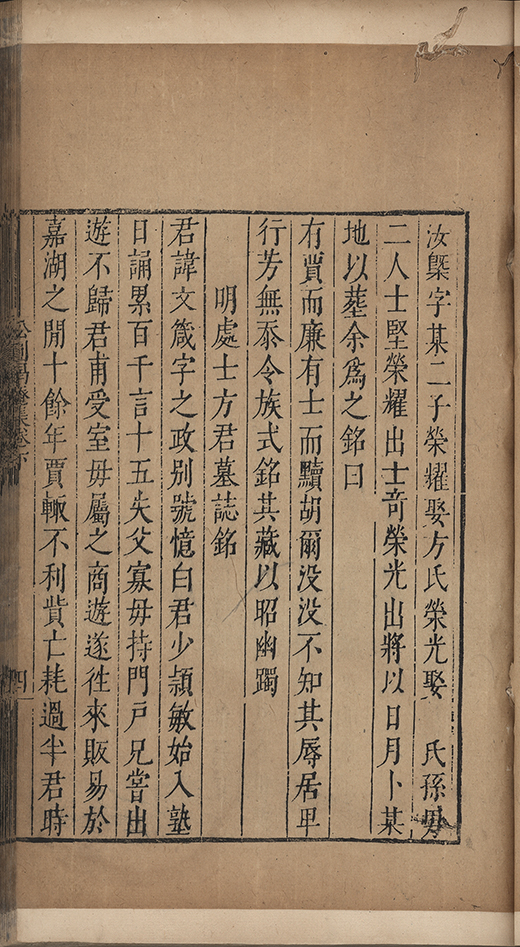 汝槩字某二子榮耀娶方氏榮光娶　氏孫男
二人士堅榮耀出士奇榮光出將以日月卜某
地以塟余為之銘曰
有賈而廉有士而黷胡爾没没不知其辱居畢
行芳無忝令族式銘其藏以昭幽躅
明處士方君墓誌銘
君諱文箴字之政别號憶白君少頴敏始入塾
日誦累百千言十五失父寡毋持門戸兄嘗出
遊不歸君甫受室毋屬之商遊遂徃來販易於
嘉湖之間十餘年賈輙不利貲亡耗過半君時
卷下
四